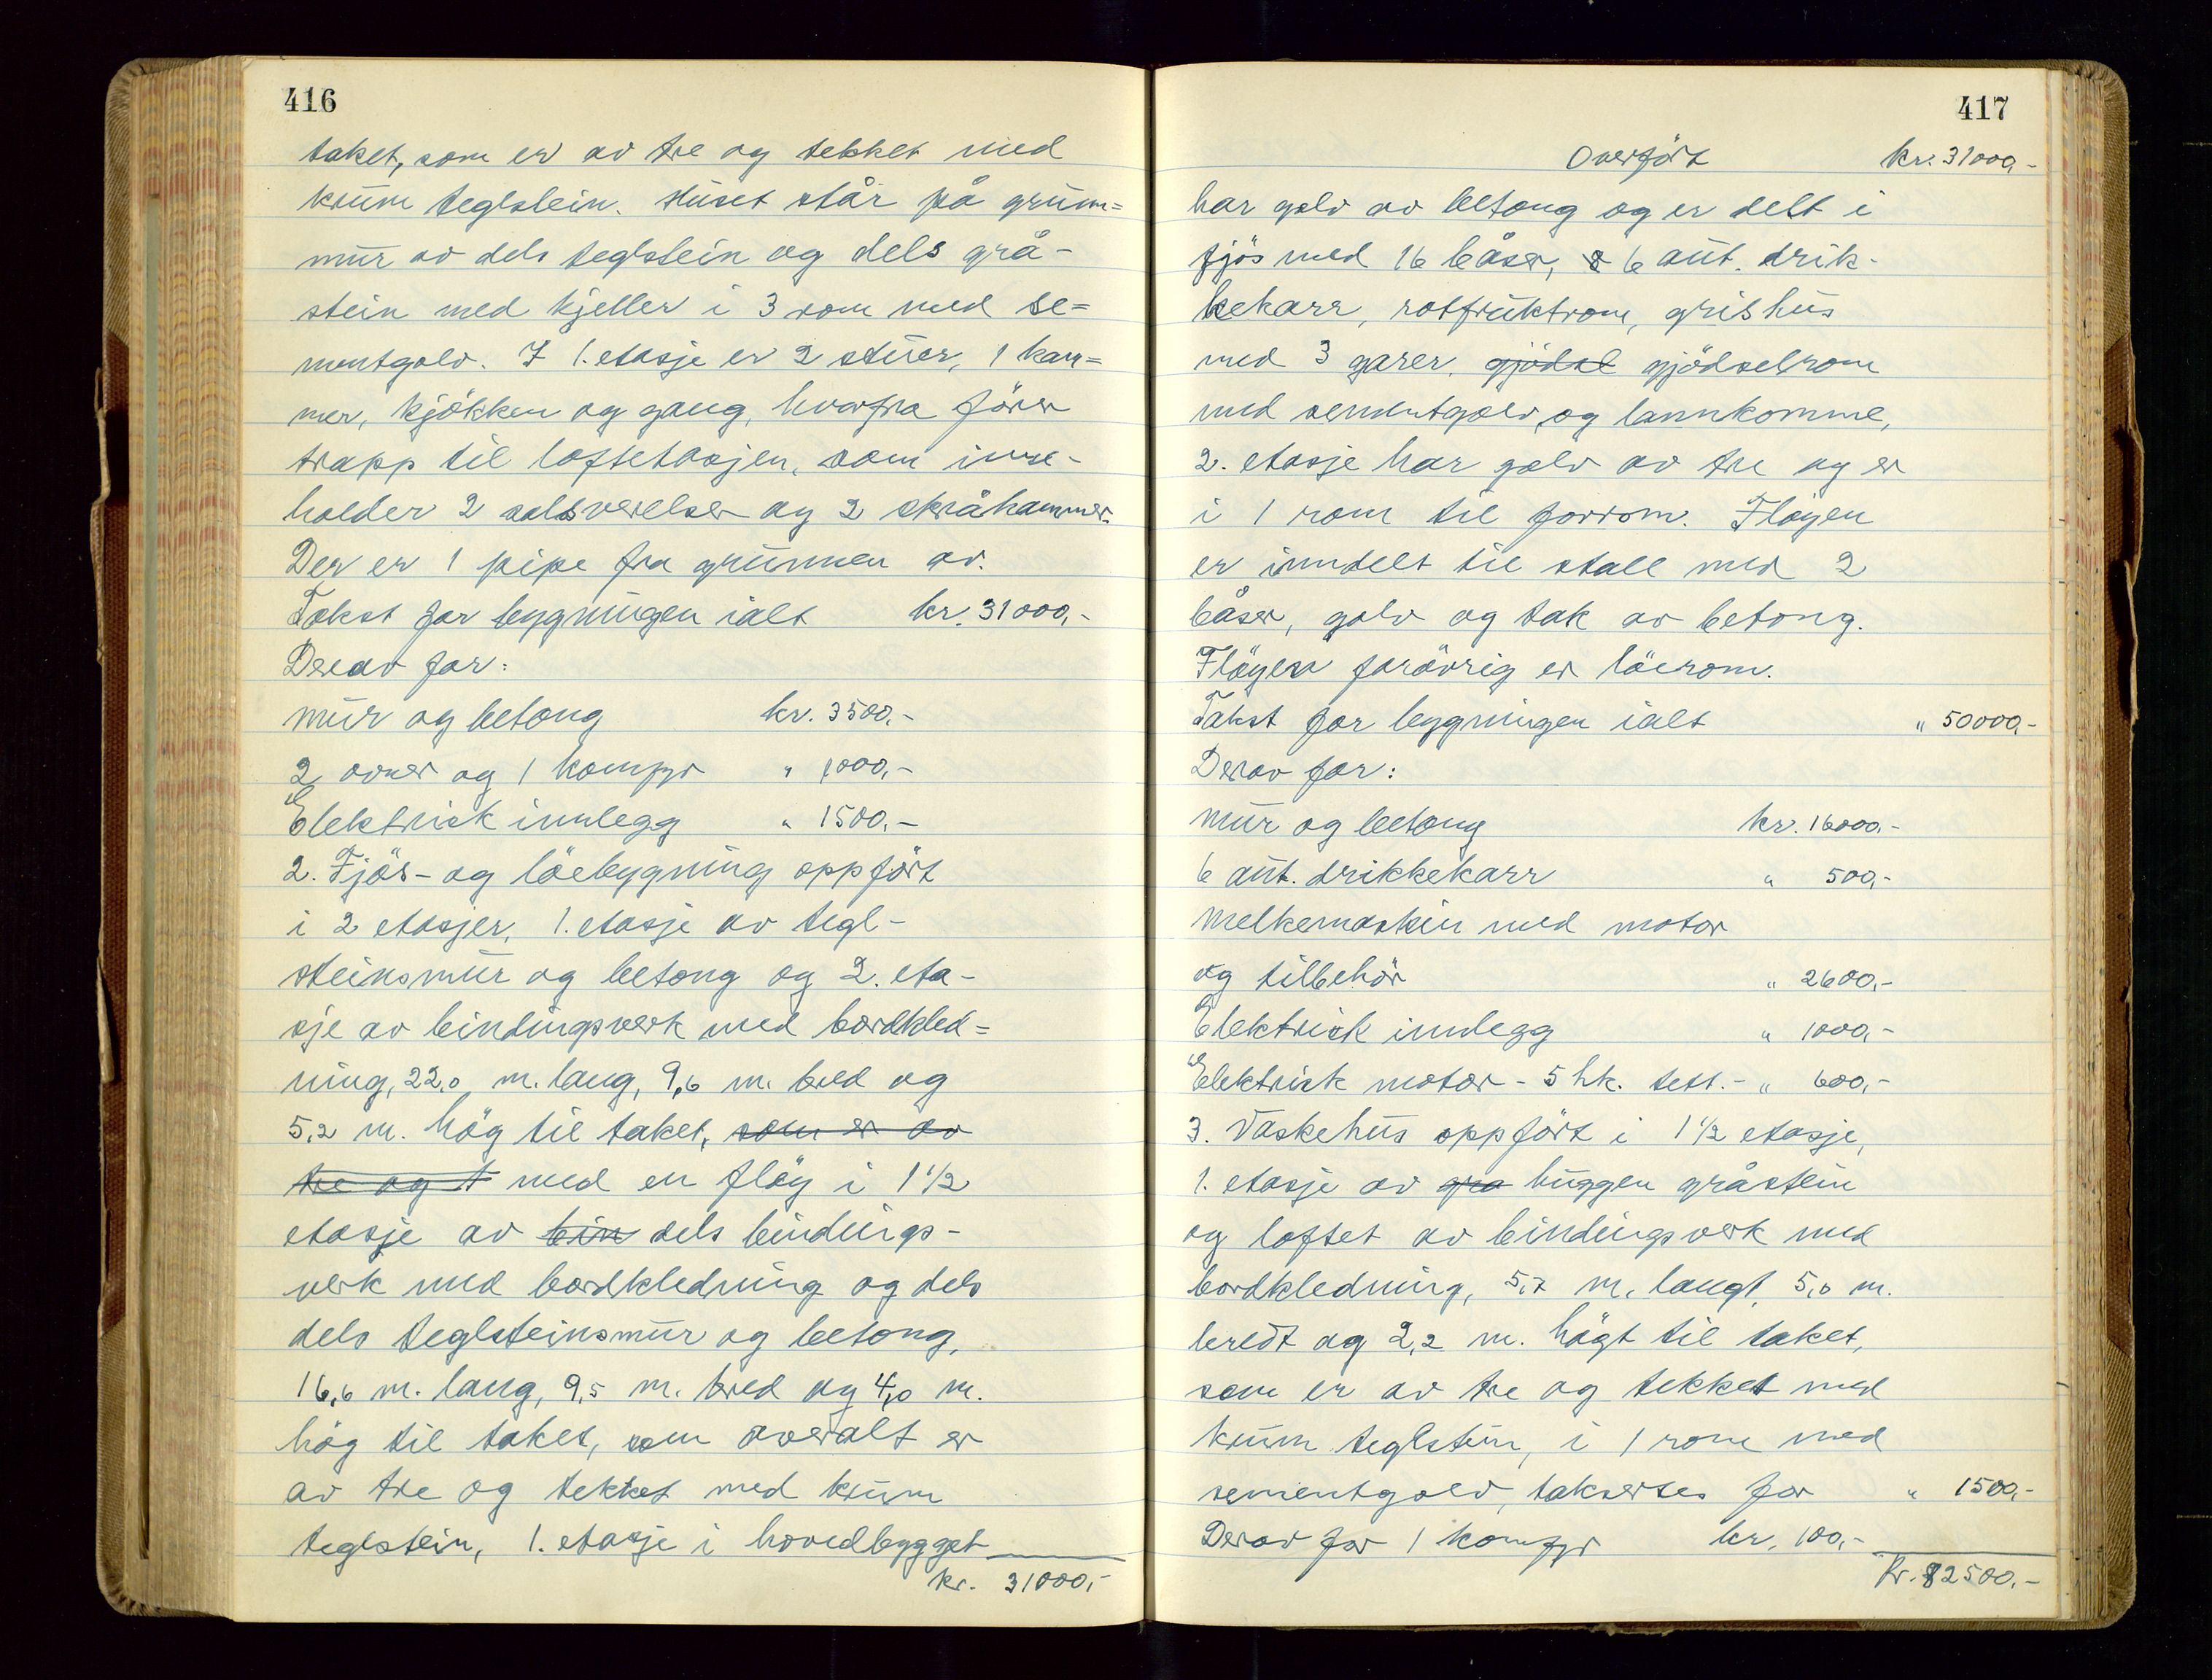 416
taket, som er av tre og tekket med
krum teglstein. Huset står på grunn=
mur av dels teglstein og dels grå-
stein med kjeller i 3 rom med se=
mentgolv. I 1. etasje er 2 stuer, 1 kam=
mer, kjökken og gang, hvorfra förer
trapp til loftsetasjen, som inne-
holder 2 salsverelser og 2 skråkammer.
Der er 1 pipe fra grunnen av.
Takst for bygningen ialt kr. 31000,-
Derav for:
mur og betong kr. 3500,-
2 ovner og 1 komfyr " 1000,-
Elektrisk innlegg " 1500,-
2. Fjös- og löebygning oppfört
i 2 etasjer, 1. etasje av tegl-
steinsmur og betong og 2. eta-
sje av bindingsverk med bordkled=
ning, 22,0 m. lang, 9,6 m. bred og
5,2 m. hög til taket, som er av
tre og t med en flöy i 1 1/2
etasje av bin dels bindings-
verk med bordkledning og dels
dels teglsteinsmur og betong,
16,6 m. lang, 9,5 m. bred og 4,0 m.
hög til taket, som overalt er
av tre og tekket med krum
teglstein, 1. etasje i hovedbygget
kr. 31000,-
417
Overfört kr. 31000,-
har golv av betong og er delt i
fjös med 16 båser, 8 6 aut. drik-
kekarr, rotfruktrom, grishus
med 3 garer, gjödsl gjödselrom
med sementgolv og lannkomme,
2. etasje har golv av tre og er
i 1 rom til forrom. Flöyen
er inndelt til stall med 2
båser, golv og tak av betong.
Flöyen forövrig er löerom.
Takst for bygningen ialt " 50000,-
Derav for:
mur og betong kr. 16000,-
6 aut. drikkekarr " 500,-
Melkemaskin med motor
og tilbehör " 2600,-
Elektrisk innlegg " 1000,-
Elektrisk motor - 5 hk. tett. - " 600,-
3. Vaskehus oppfört i 1 1/2 etasje,
1. etasje av gra huggen gråstein
og loftet av bindingsverk med
bordkledning, 5,7 m. langt, 5,0 m.
bredt og 2,2 m. högt til taket,
som er av tre og tekket med
krum teglstein, i 1 rom med
sementgolv, takseres for " 1500,-
Derav for 1 komfyr kr. 100,-
kr. 82500,-